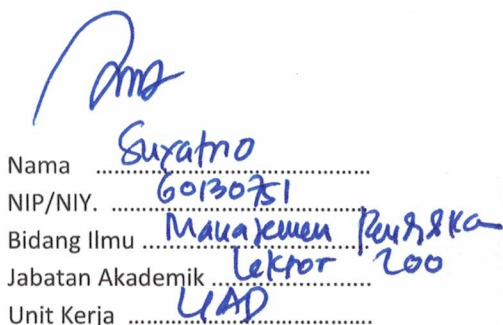 Nama Suyatno
NIP/NIY. 60130751
Bidang Ilmu Manajemen
Jabatan Akademik Lektor 200
Unit Kerja UAD